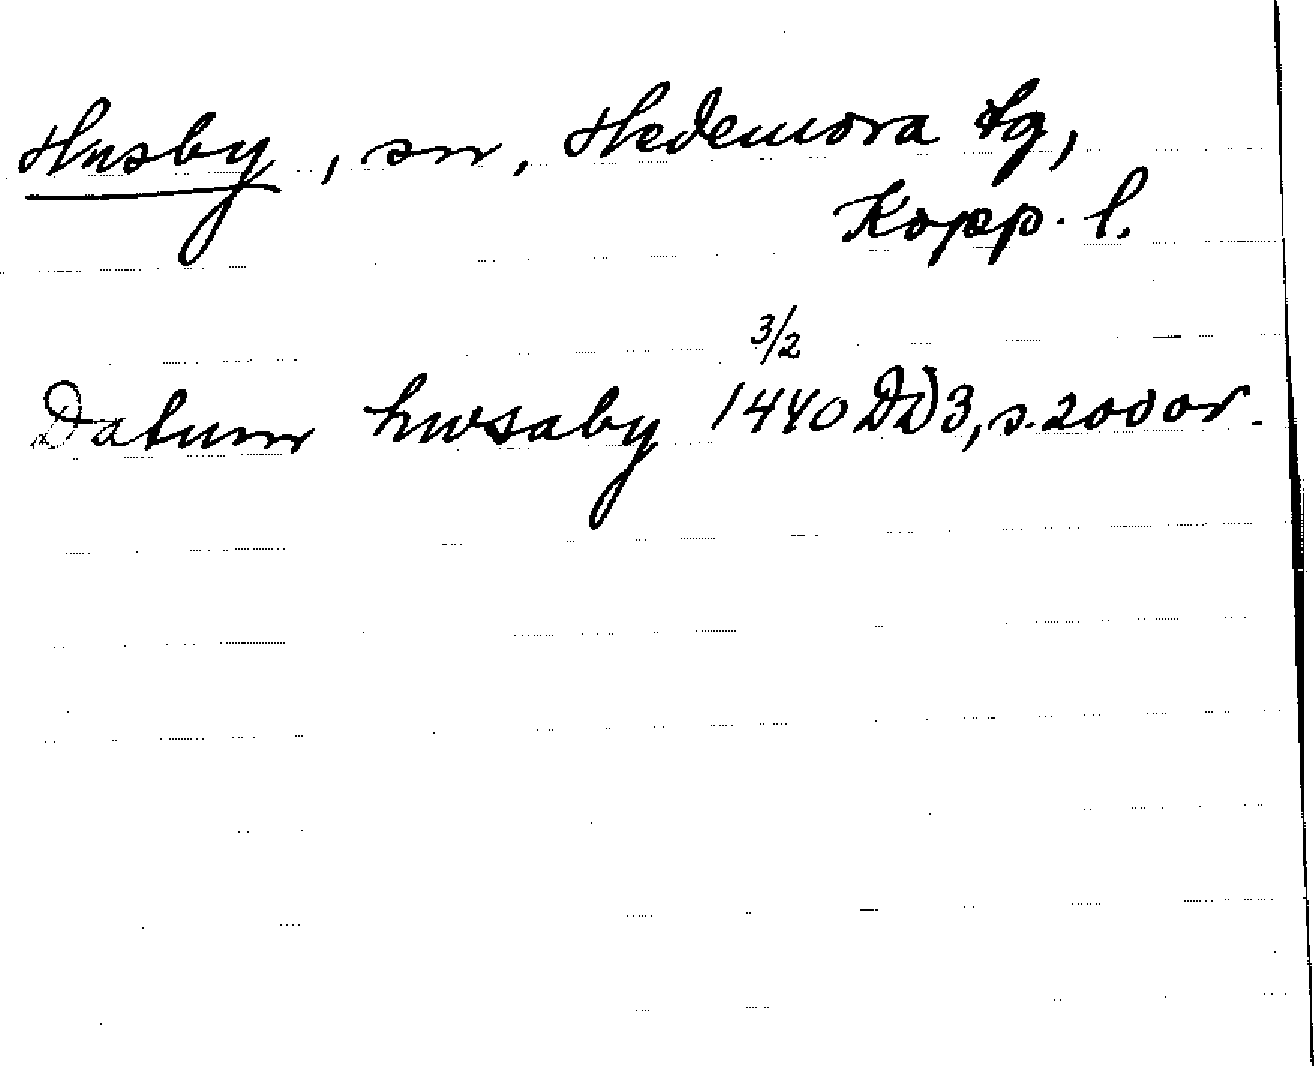 Husby, sn, Hedemora tg,
Kopp. l.
3/2
Datum hwsaby 1440 DD 3, s. 200 or.